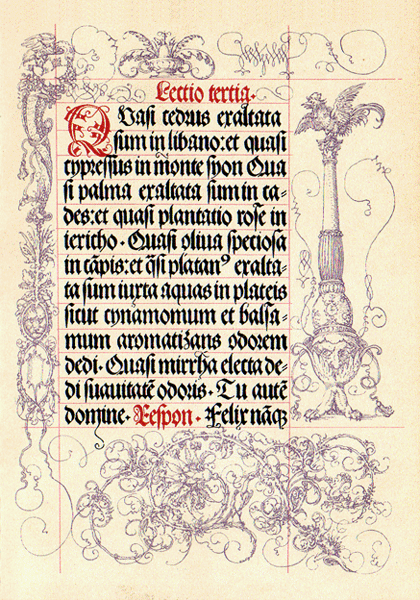 Lectio tertia.
QVasi cedrus exaltata
sum in libano: et quasi
cypressus in mōnte syon Qua
si palma exaltata sum in ca-
des: et quasi plantatio rose in
iericho. Quasi oliua speciosa
in cāpis: et q̄si platanꝰ exalta-
ta sum iuxta aquas in plateis
sicut cynamomum et balsa-
mum aromatizans odorem
dedi. Quasi mirrha electa de-
di suauitatē odoris. Tu autē
domine. Respon. Felix nāqꝫ